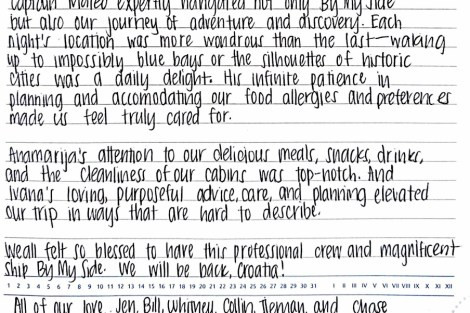 Captain Mateo expertly navigated not only By My Side
but also our journey of adventure and discovery. Each
night's location was more wondrous than the last—waking
up to impossibly blue bays or the silhouettes of historic
cities was a daily delight. His infinite patience in
planning and accomodating our food allergies and preferences
made us feel truly cared for.
Anamarija's attention to our delicious meals, snacks, drinks,
and the cleanliness of our cabins was top-notch. And
Ivana's loving, purposeful advice, care, and planning elevated
our trip in ways that are hard to describe.
We all felt so blessed to have this professional crew and magnificent
ship By My Side. We will be back, Croatia!
1 2 3 4 5 6 7 8 9 10 11 12 13 14 15 16 17 18 19 20 21 22 23 24 25 26 27 28 29 30 31 I II III IV V VI VII VIII IX X XI XII
All of our love, Jen, Bill, Whitney, Collin, Tiernan, and Chase